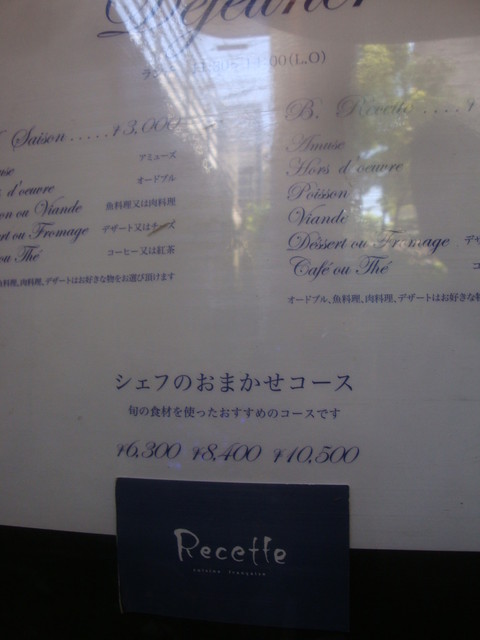 Déjeuner
(L.O)
Saison.....¥3,000
アミューズ
d'oeuvre
オードブル
ou Viande
魚料理又は肉料理
ou Fromage
デザート又はチーズ
ou Thé
コーヒー又は紅茶
魚料理、肉料理、デザートはお好きな物をお選び頂けます
B. Recette.....¥
Amuse
Hors d'oeuvre
Poisson
Viande
Dessert ou Fromage
Café ou Thé
オードブル、魚料理、肉料理、デザートはお好きな
シェフのおまかせコース
旬の食材を使ったおすすめのコースです
¥6,300 ¥8,400 ¥10,500
Recette
cuisine française